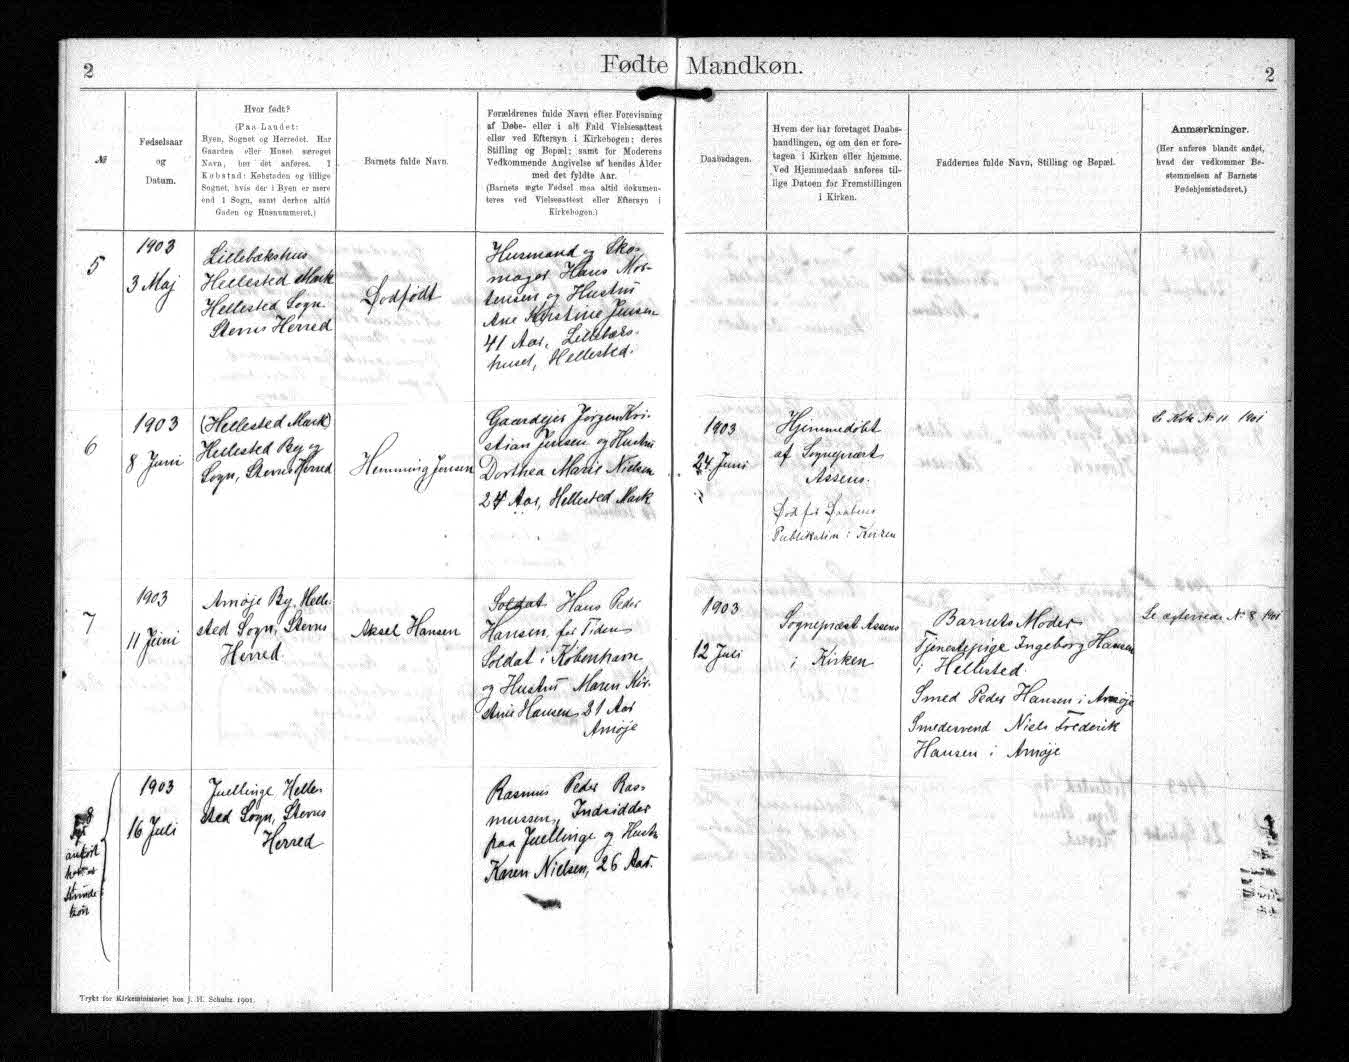 2
Fødte Mandkøn.
2
№
Fødselsaar
og
Datum.
Hvor født?
(Paa Landet:
Byen, Sognet og Herredet. Har
Gaarden eller Huset særeget
Navn, bør det anføres. I
Købstad: Købstaden og tillige
Sognet, hvis der i Byen er mere
end 1 Sogn, samt derhos altid
Gaden og Husnummeret.)
Barnets fulde Navn.
Forældrenes fulde Navn efter Forevisning
af Døbe- eller i alt Fald Vielsesattest
eller ved Eftersyn i Kirkebogen; deres
Stilling og Bopæl; samt for Moderens
Vedkommende Angivelse af hendes Alder
med det fyldte Aar.
(Barnets ægte Fødsel maa altid dokumen-
teres ved Vielsesattest eller Eftersyn i
Kirkebogen.)
Daabsdagen.
Hvem der har foretaget Daabs-
handlingen, og om den er fore-
tagen i Kirken eller hjemme.
Ved Hjemmedaab anføres til-
lige Datoen for Fremstillingen
i Kirken.
Faddernes fulde Navn, Stilling og Bopæl.
Anmærkninger.
(Her anføres blandt andet,
hvad der vedkommer Be-
stemmelsen af Barnets
Fødehjemstedsret.)
5
1903
3 Maj
Lillebækshus
Hellested Mark
Hellested Sogn
Stevns Herred
Dødfødt
Husmand og Sko-
mager Hans Mor-
tensen og Hustru
Ane Kirstine Jensen
41 Aar, Lillebæks-
huset, Hellested.
6
1903
8 Juni
(Hellested Mark)
Hellested By og
Sogn, Stevns Herred
Hemming Jensen
Gaardejer Jørgen Kri-
stian Jensen og Hustru
Dorthea Marie Nielsen
24 Aar, Hellested Mark
1903
24 Juni
Hjemmedøbt
af Sognepræst
Assens.
Død før Daabens
Publikation i Kirken
Nr 11 1901
7
1903
11 Juni
Arnøje By, Helle-
sted Sogn, Stevns
Herred
Aksel Hansen
Soldat Hans Peder
Hansen, for Tiden
Soldat i København
og Hustru Maren Kir-
stine Hansen 21 Aar
Arnøje
1903
12 Juli
Sognepræst Assens
i Kirken
Barnets Moder
Tjenestepige Ingeborg Hansen
i Hellested
Smed Peder Hansen i Arnøje
Smedesvend Niels Frederik
Hansen i Arnøje
Se Nr 8 1901
8
1903
16 Juli
Juellinge Helle-
sted Sogn, Stevns
Herred
Rasmus Peder Ras-
mussen, Indsidder
paa Juellinge og Hustru
Karen Nielsen, 26 Aar.
Trykt for Kirkeministeriet hos J. H. Schultz. 1901.